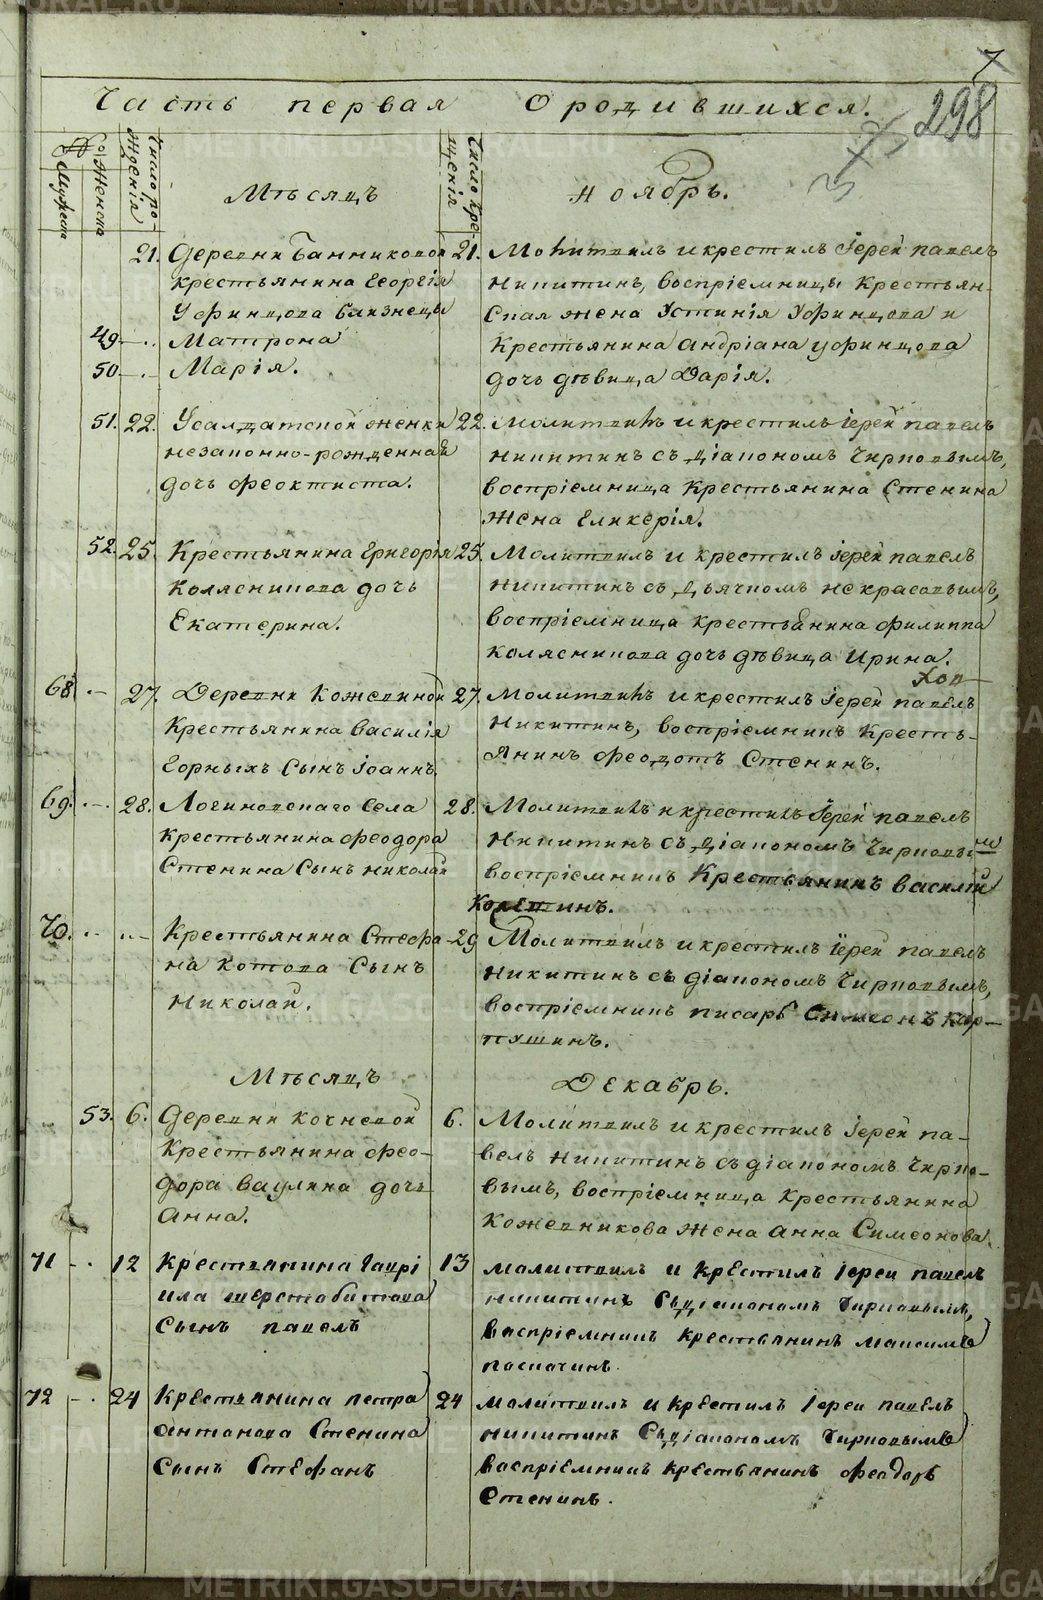 METRIKI.GASO-URAL.RU METRIKI.GASO-URAL.RU
7
298
Часть первая О родившихся.
№
Мужеска
Женска
Число рождения
Число крещенія
Мѣсяцъ Ноябрь.
21. Деревни Банниковой 21. Молитвилъ и крестилъ Іерей павелъ
крестьянина Георгія Никитинъ, воспріемницы Крестьян-
Уфинцова близнецы ская жена Устинія Уфинцова и
49 Матрона Крестьянина андріана уфинцова
50 Марія. дочь дѣвица Дарія.
51. 22. У салдатской женки 22. Молитвилъ и крестилъ іерей павелъ
незаконно-рожденная Никитинъ съ діакономъ Чирковымъ,
дочь феоктиста. воспріемница Крестьянина Стенина
жена Гликерія.
52. 25. Крестьянина Григорія 25. Молитвилъ и крестилъ іерей павелъ
Колясникова дочь Никитинъ съ дьячкомъ некрасовымъ,
Екатерина. воспріемница крестьянина филиппа
колясникова дочь дѣвица Ирина.
68 27. Деревни Кожевиной 27. Молитвилъ и крестилъ іерей павелъ
Крестьянина Василія Никитинъ, воспріемникъ Кресть-
Горныхъ Сынъ Іоаннъ. янинъ феодотъ Стенинъ.
69. 28. Логиновскаго Села 28. Молитвилъ и крестилъ Іерей павелъ
Крестьянина феодора Никитинъ съ діакономъ Чирковым
Стенина Сынъ николай воспріемникъ Крестьянинъ василій
70. Крестьянина Стефа- 29 Молитвилъ и крестилъ іерей павелъ
на Котова Сынъ Никитинъ съ діакономъ Чирковымъ,
Николай. воспріемникъ писарь Симеонъ Кар-
пушинъ.
Мѣсяцъ Декабрь.
53. 6. Деревни Кочневой 6. Молитвилъ и крестилъ іерей па-
Крестьянина фео- велъ Никитинъ съ діакономъ Чирко-
дора Ваулина дочь вымъ, воспріемница Крестьянина
Анна. Кожевникова жена Анна Симеонова.
71 12 Крестьянина Гаврі 13 молитвилъ и крестилъ Іереи павелъ
ила шерстобитова никитинъ Съдіакономъ Чирковымъ,
Сынъ павелъ воспріемникъ крестьянинъ максимъ
72 24 Крестьянина петра 24 молитвилъ и крестилъ Іереи павелъ
антонова Стенина никитинъ Съдіакономъ Чирковымъ
Сынъ Стефанъ воспріемникъ крестьянинъ феодоръ
Стенинъ.
METRIKI.GASO-URAL.RU METRIKI.GA